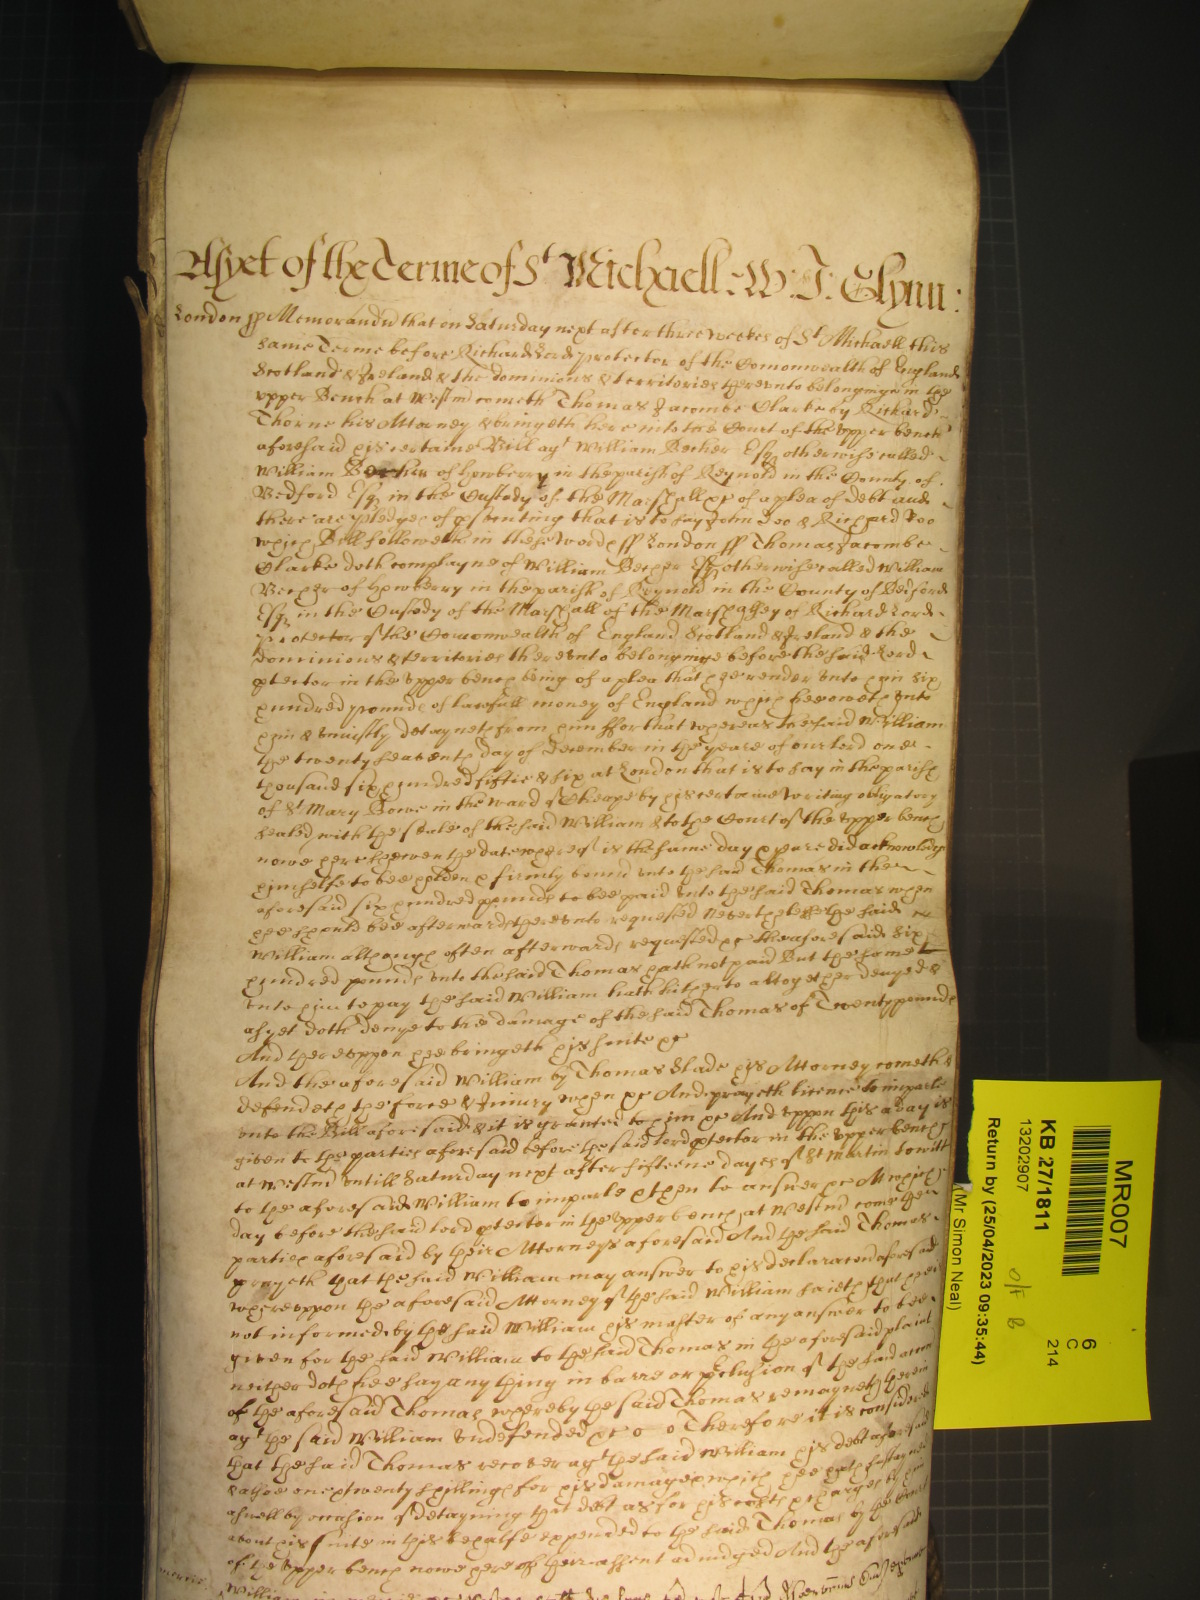 As yet of the Terme of St Michaell: W: J: Glynn:
London ss Memorandu that on Saturday next after three weekes of St Michaell this
same Terme before Richard Lord protector of the Comonwealth of England
Scotland & Ireland & the dominions & territories thereunto belonginge in the
upper Bench at Westmr cometh Thomas Jacombe Clarke by Richard
Thorne his Attorney & bringeth here into the Court of the upper bench
aforesaid his certaine Bill agt William Becher Esqr otherwise called
William Becher of Howberry in the parish of Reynold in the County of
Bedford Esqr in the Custody of the Marshall &c of a plea of debt and
there are pledges of psecuting that is to say John Doo & Richard Roo
which Bill followeth in these words ss London ss Thomas Jacombe
Clarke doth complayne of William Becher Esqr otherwise called William
Becher of Howberry in the parish of Reynold in the County of Bedford
Esqr in the Custody of the Marshall of the Marshalsey of Richard Lord
Protector of the Comonwealth of England Scotland & Ireland & the
dominions & territories thereunto belonginge before the said Lord
ptector in the upper bench being of a plea that hee render unto him six
hundred pounds of lawfull money of England which hee oweth unto
him & uniustly detayneth from him ffor that whereas the said William
the twenty seaventh day of December in the yeare of our lord one
thousand six hundred fiftie & six at London that is to say in the parish
of St Mary Bowe in the ward of Cheape by his certaine writing obligatory
sealed with the seale of the said William & to the Court of the upper bench
nowe here shewen the date whereof is the same day & yeare did acknowledge
himselfe to bee holden & firmly bound unto the said Thomas in the
aforesaid six hundred pounds to bee paid unto the said Thomas when
hee should bee afterwards thereunto requested Neverthelesse the said
William although often afterwards requested &c the aforesaid six
hundred pounds unto the said Thomas hath not paid But the same
unto him to pay the said William hath hitherto altogether denyed &
as yet doth denye to the damage of the said Thomas of Twenty pounds
And thereuppon hee bringeth his suite &c
And the aforesaid William by Thomas Slade his Attorney cometh &
defendeth the force & Iniury when &c And prayeth licence to imparle
unto the Bill aforesaid & it is granted to him &c And uppon this a day is
given to the parties aforesaid before the said lord ptector in the upper bench
at Westmr untill Saturday next after fifteene dayes of St Martin to witt
to the aforesaid William to imparle & then to answer &c At which
day before the said lord ptector in the upper bench at Westmr come the
parties aforesaid by their Attorneys aforesaid And the said Thomas
prayeth that the said William may answer to his declaracon aforesaid
whereuppon the aforesaid Attorney of the said William saieth that hee is
not informed by the said William his master of any answer to bee
given for the said William to the said Thomas in the aforesaid plaint
neither doth hee say any thing in barre or pclusion of the said accon
of the aforesaid Thomas whereby the said Thomas remayneth therein
agt the said William undefended &c Therefore it is considered
that the said Thomas recover agt the said William his debt aforesaid
& alsoe one & twenty shillings for his damages which hee hath susteyned
aswell by occasion of detayning that debt as for his costs & charges by him
about his suite in this behalfe expended to the said Thomas by the Court
of the upper bench nowe here of their assent adiudged And the aforesaid
William
MR007
KB 27/1811
13202907
Return by (25/04/2023 09:35:44)
(Mr Simon Neal)
6
C
214